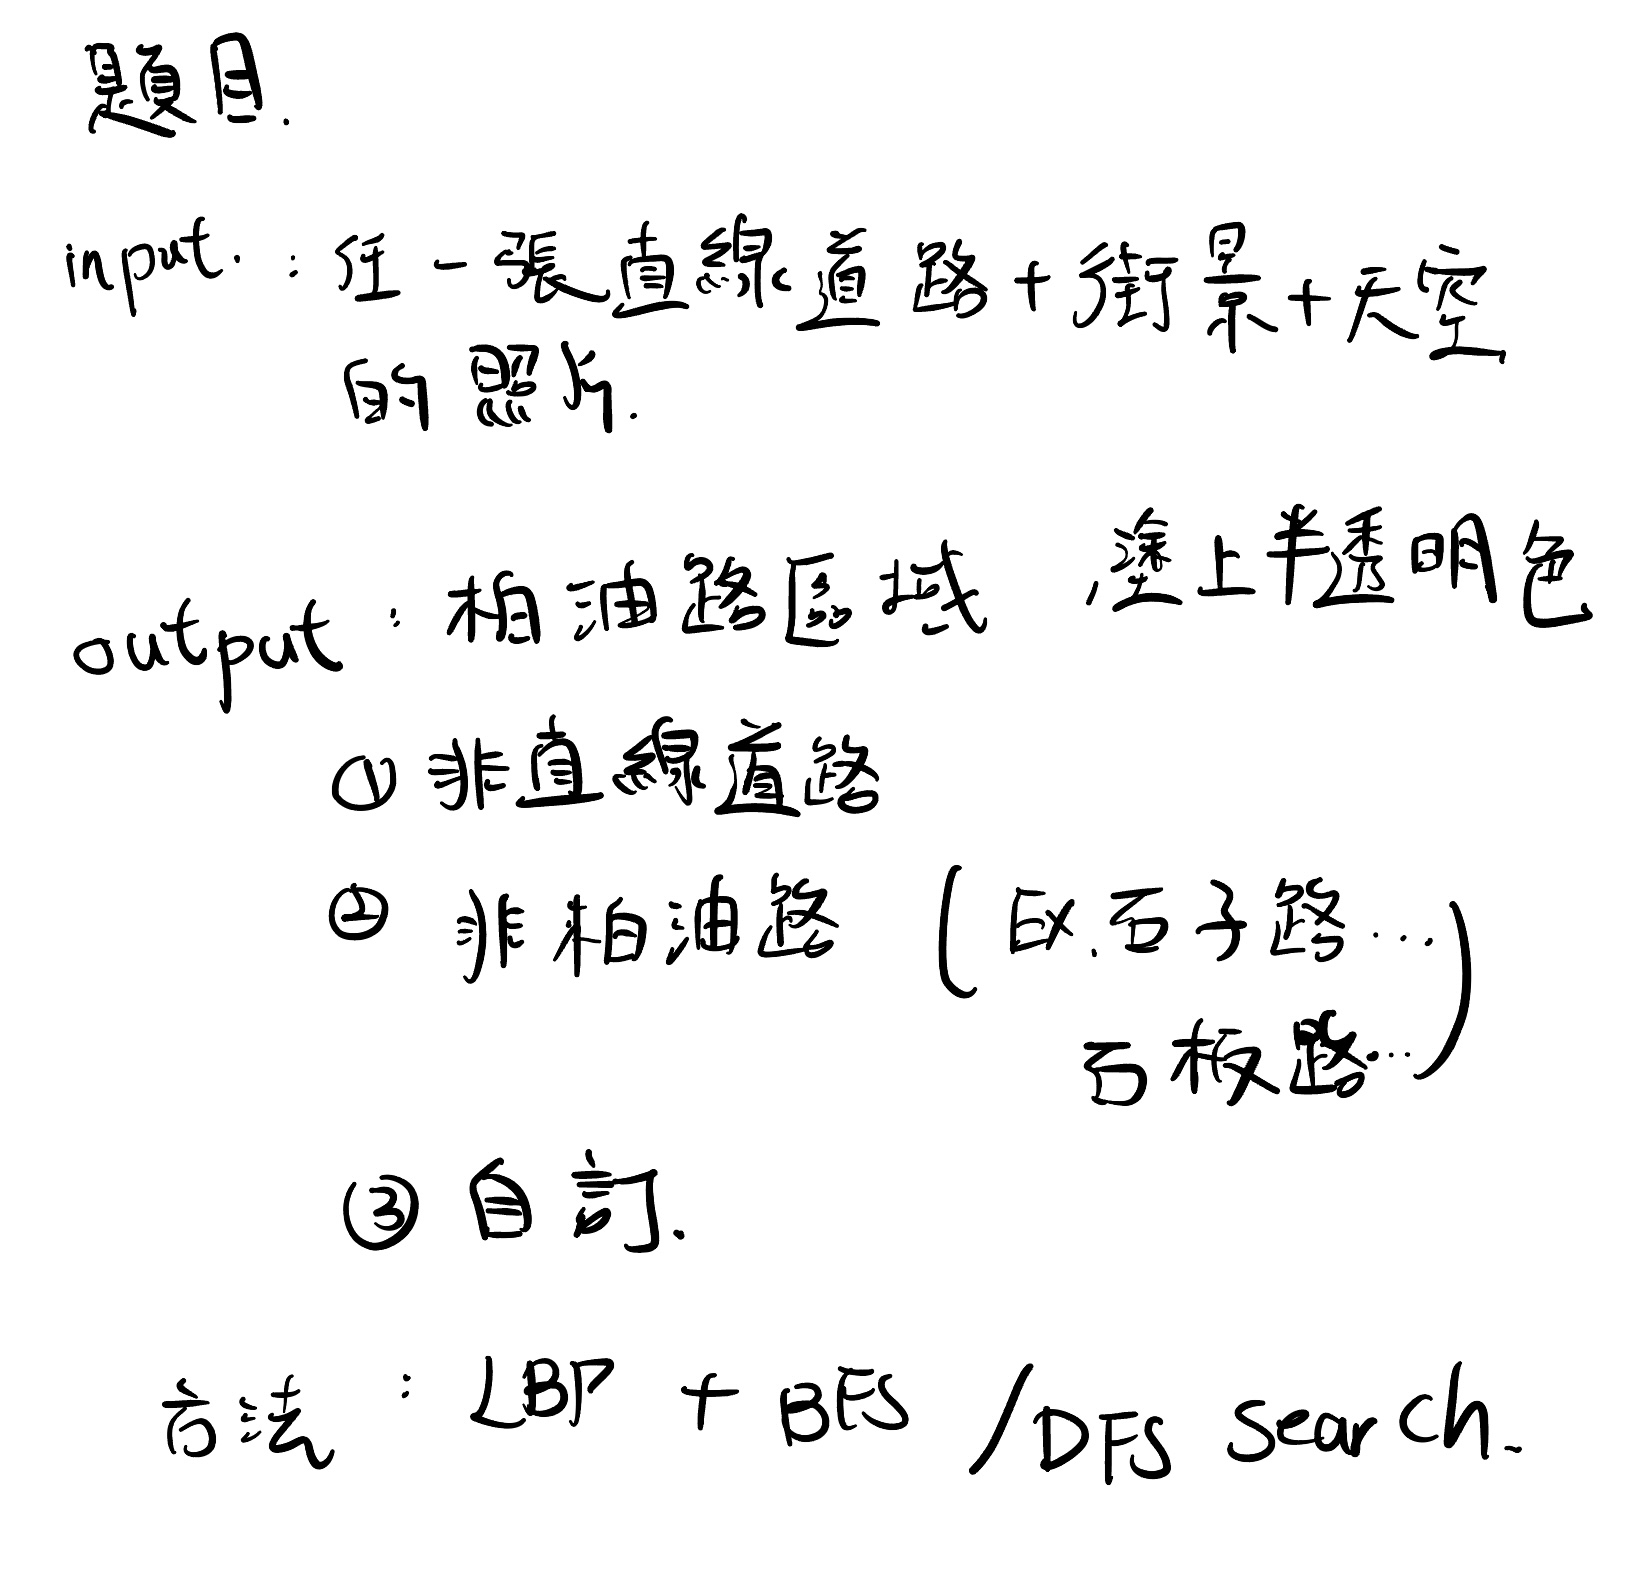 題目.
input. : 任一張直線道路+街景+天空
的照片.
output : 柏油路區域 , 塗上半透明色
① 非直線道路
② 非柏油路 (EX. 石子路...
石板路...)
③ 自訂.
方法 : LBP + BFS /DFS search.